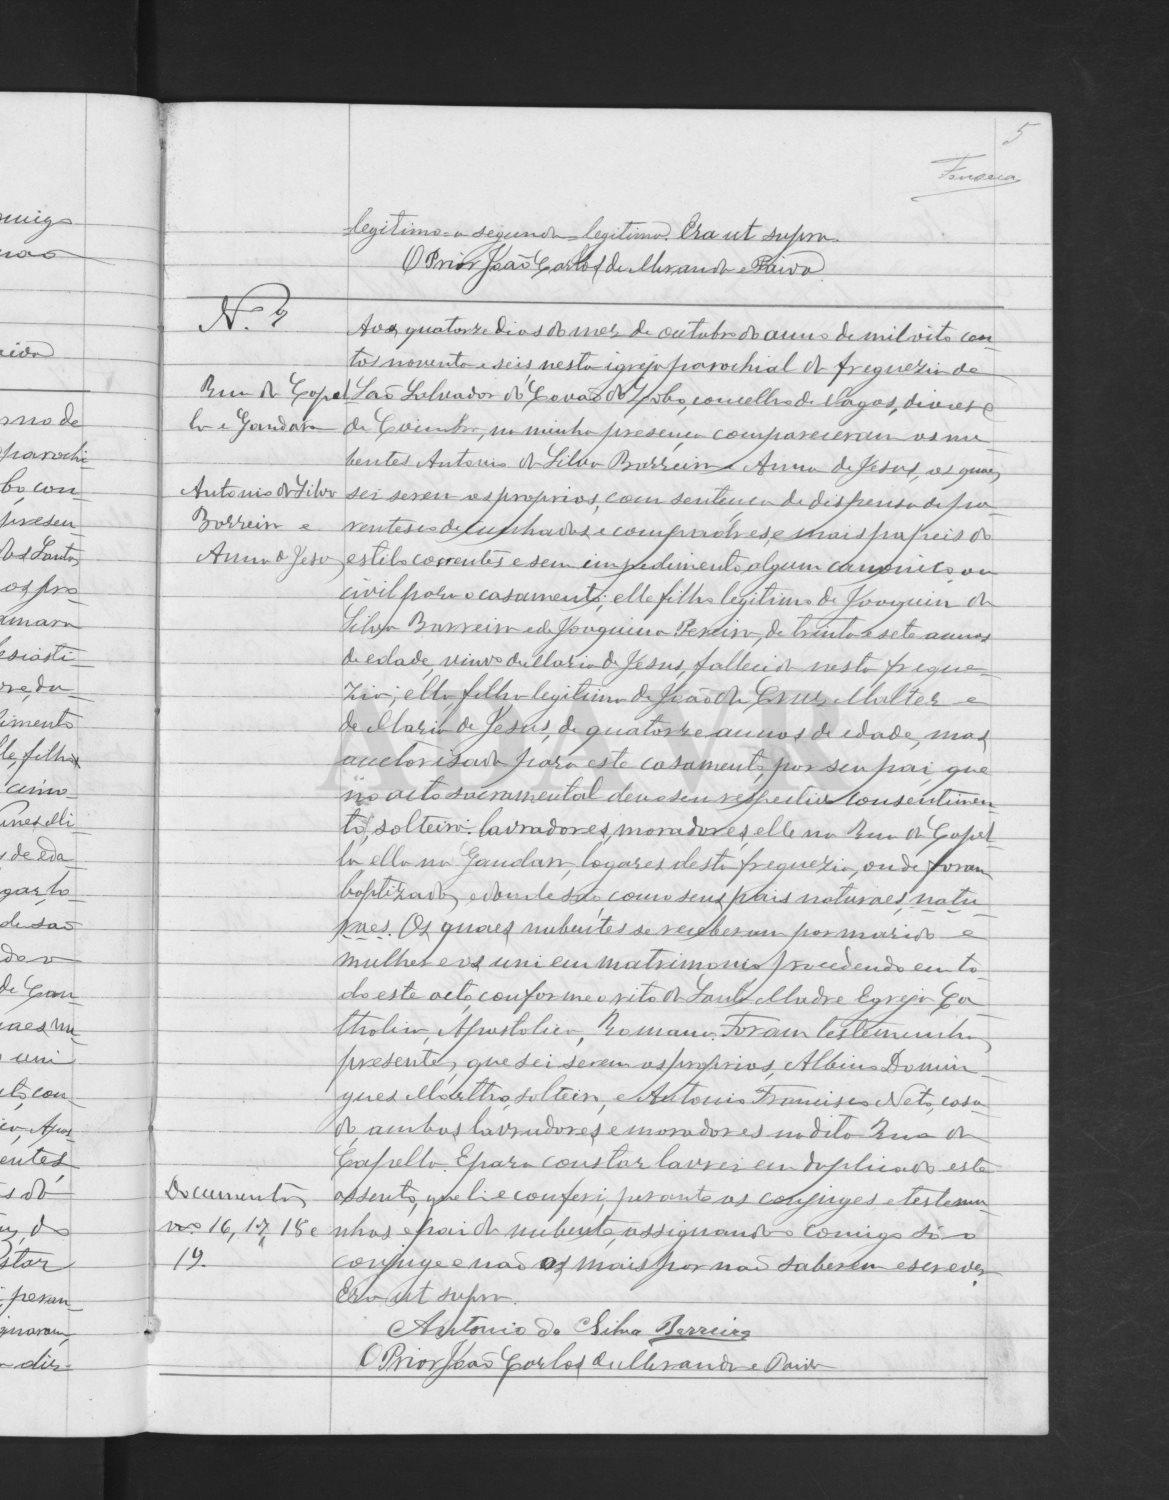 5
Fonseca
legitimo = a segunda = legitima. Era ut supra.
O Prior João Carlos de Miranda e Paiva
N.
Rua da Capel
la e Gandara
Antonio da Silva
Barreira e
Anna de Jesus
Aos quatorze dias do mez de outubro do anno de mil oito cen-
tos noventa e seis nesta igreja parochial da freguezia de
São Salvador do Covão do Lobo, concelho de Vagos, diocese
de Coimbra, na minha presença compareceram os nu-
bentes Antonio da Silva Barreira e Anna de Jesus, os quaes
sei serem os proprios, com sentença de dispensa de pa-
rentesco de cunhados e compadres e mais papeis do
estilo correntes e sem impedimento algum canonico ou
civil para o casamento; elle filho legitimo de Joaquim da
Silva Barreira e de Joaquina Pereira, de trinta e sete annos
de edade, viuvo de Maria de Jesus, fallecida nesta fregue-
zia; ella filha legitima de João da Cruz Malter e
de Maria de Jesus, de quatorze annos de edade, mas
auctorisada para este casamento, por seu pai, que
no acto sacramental deu o seu respectivo consentimen-
to, solteira: lavradores, moradores, elle na Rua da Capel-
la ella na Gandara, logares desta freguezia, onde foram
baptizados, e donde são, como seus pais naturaes, natu-
raes. Os quaes nubentes se receberam por marido e
mulher e os uni em matrimonio procedendo em to-
do este acto conforme o rito da Santa Madre Egreja Ca-
tholica, Apostolica, Romana. Foram testemunhas
presentes, que sei serem os proprios, Albino Domin-
gues Martho, solteiro, e Antonio Francisco Neto, casa-
do, ambos lavradores e moradores na dita Rua da
Capella. E para constar lavrei em duplicado este
assento, que li e conferi, perante os conjuges e testemu-
nhas e pai da nubente, assignando comigo só o
conjuge e não os mais por não saberem escrever.
Era ut supra.
Documentos
nos. 16, 17, 18 e
19.
Antonio da Silva Barreira
O Prior João Carlos de Miranda e Paiva